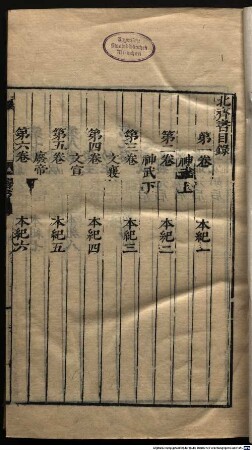 北齊書目錄
第一卷 本紀一
神武上
第二卷 本紀二
神武下
第三卷 本紀三
文襄
第四卷 本紀四
文宣
第五卷 本紀五
廢帝
第六卷 本紀六